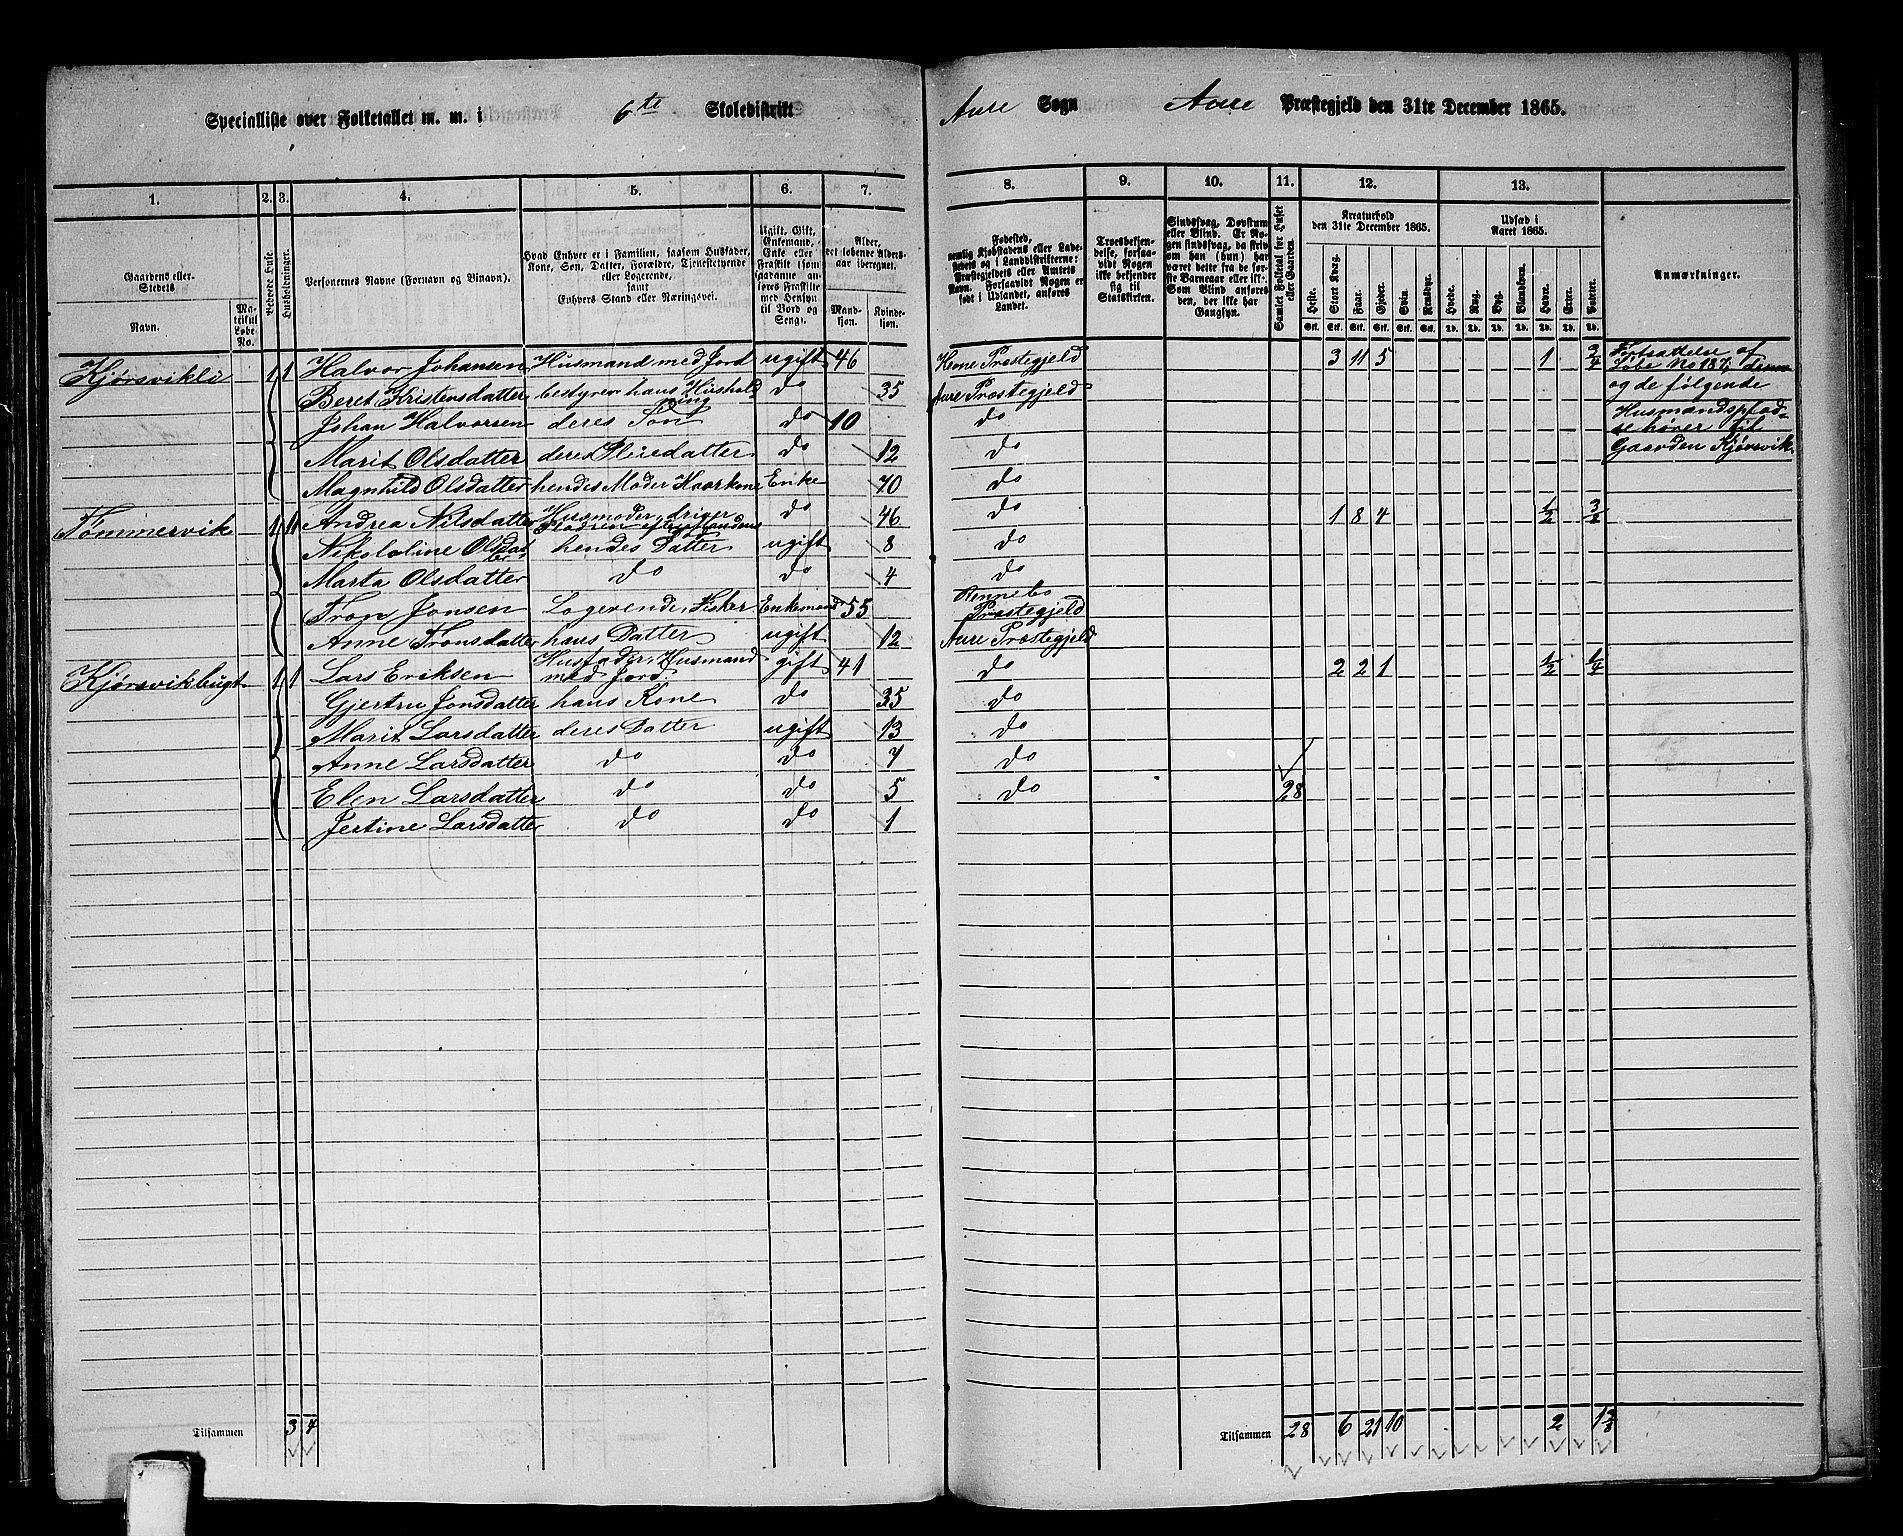 Specialliste over Folketallet m. m. i 6te Skoledistrikt Aure Sogn Aure Præstegjeld den 31te December 1865.
1. 2. 3. 4. 5. 6. 7. 8. 9. 10. 11. 12. 13.
Gaardens eller Stedets Navn. Matrikul Løbe-No. Beboede Huse Husholdninger. Personernes Navne (Fornavn og Tilnavn). Hvad Enhver er i Familien, saasom Husfader, Kone, Søn, Datter, Forældre, Tjenestetyende eller Logerende, samt Enhvers Stand eller Næringsvei.
Alder, det løbende Alders-aar iberegnet. Mandkjøn. Kvindekjøn.
Kreaturhold den 31te December 1865. Udsæd i Aaret 1865. Anmærkninger.
Heste. Stort Kvæg. Faar. Gjeder. Svin. Rensdyr. Hvede. Rug. Byg. Blandkorn. Havre. Erter. Poteter.
Kjørsvikli 1 1 Halvor Johansen Husmand med Jord ugift 46 Heme Præstegjeld 3 11 5 1 2/4 Fortsættelse af
Løbe No 187, denne
Beret Kristensdatter bestyrer hans Hushold-ning do 35 Aure Præstegjeld og de følgende
Johan Halvorsen deres Søn do 10 do Husmandsplad-
se hører til
Marit Olsdatter deres Pleiedatter do 12 do Gaarden Kjørsvik.
Magnhild Olsdatter hendes Moder Kaarkone Enke 70 do
Tømmervik 1 1 Andrea Nilsdatter Husmoder, driver do 46 do 1 8 4 1/2
Nikololine Olsdatter hendes Datter ugift 8 do
Marta Olsdatter do do 4 do
Tron Jonsen Logerende, Fisker Enkemand 55 Præstegjeld
Anne Tronsdatter hans Datter ugift 12 Aure Præstegjeld
Kjørsvikbugt 1 1 Lars Eriksen Husfader, Husmand med Jord. gift 41 do 2 2 1 1/2 1/4
Gjertru Jonsdatter hans Kone do 35 do
Marit Larsdatter deres Datter ugift 13 do
Anne Larsdatter do do 7 do
Elen Larsdatter do do 5 do 28
Jertine Larsdatter do do 1
Tilsammen 3 4 Tilsammen 28 6 21 10 2